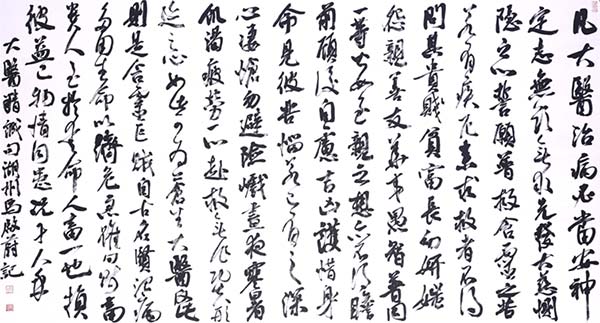 凡大醫治病必當安神
定志無欲無求先發大慈惻
隱之心誓願普救含靈之苦
若有疾厄來求救者不得
問其貴賤貧富長幼妍媸
怨親善友華夷愚智普同
一等皆如至親之想亦不得瞻
前顧後自慮吉凶護惜身
命見彼苦惱若己有之深
心悽愴勿避險巇晝夜寒暑
飢渴疲勞一心赴救無作功夫形
跡之心如此可為蒼生大醫反此
則是含靈巨賊自古名賢治病
多用生命以濟危急雖曰賤畜
貴人至於愛命人畜一也損
彼益己物情同患況于人乎
大醫精誠句湖州馬記